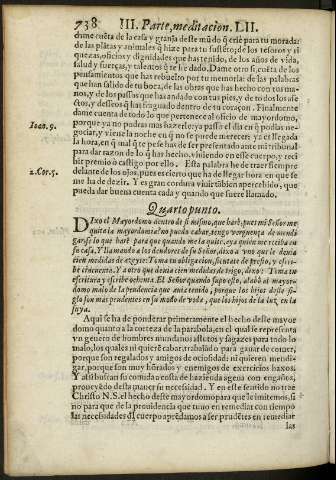 738 III. Parte, meditacion. LII.
dame cuẽta de la casa y granja deste mũdo q̃ criè para tu morada:
de las plãtas y animales q̃ hize para tu sustẽto; de los tesoros y ri
quezas, oficios y dignidades que has tenido, de los años de vida,
salud y fuerças, y talentos q̃ te he dado. Dame otro sí, cuẽta de los
pensamientos que has rebuelto por tu memoria: de las palabras
que han salido de tu boca, de las obras que has hecho con tus ma-
nos, y de los passos que has andado con tus pies, y de todos los afe
ctos, y desseos q̃ has fraguado dentro de tu coraçon. Finalmente
dame cuenta de todo lo que pertenece al oficio de mayordomo,
Ioan. 9.
porque ya no podras mas hazerle; ya passò el dia en q̃ podias ne-
gociar, y viene la noche en q̃ no se puede merecer, ya es llegada
la hora, en q̃ mal q̃ te pese has de ser presentado ante mi tribunal
para dar razon de lo q̃ has hecho, viuiendo en esse cuerpo, y reci
2. Cor. 5.
bir premio ò castigo por ello. Esta palabra he de traer siempre
delante de los ojos, pues es cierto que ha de llegar hora en que se
me ha de dezir. Y es gran cordura viuir tãbien apercebido, que
pueda dar buena cuenta cada y quando que fuere llamado.
Quarto punto.
Dixo el Mayordomo dentro de si mismo, que harè, pues mi Señor me
quita la mayordomia? no puedo cabar, tengo verguença de mendi
gar: se lo que harè para que quando me la quite, aya quien me reciba en
su casa. Y llamando a los deudores de su Señor, dixo a vno que le deuia
cien medidas de azeyte: Toma tu obligacion, sientate de presto, y escri-
be cincuenta. Y a otro que deuia cien medidas de trigo, dixo: Toma tu
escritura y escribe ochenta. El Señor quando supo esto, alabò al mayor-
domo malo de la prudencia que auia tenido, porque los hijos deste si-
glo son mas prudentes en su modo de vida, que los hijos de la luz en la
suya.
Aqui se ha de ponderar primeramente el hecho deste mayor
domo quanto a la corteza de la parabola, en el qual se representa
vn genero de hombres mundanos astutos y sagazes para todo lo
malo, los quales ni quierẽ cabar, trabajãdo para ganar de comer,
porque son regalados y amigos de ociosidad: ni quieren mendi-
gar, porque son muy hõrados y enemigos de exercicios baxos.
Y assi buscan su comida a costa de hazienda agena con engaños,
proueyẽdo desta manera su necessidad. Y en este sentido no trae
Christo N.S. el hecho deste mayordomo para que le imitemos, si
no para que de la prouidencia que tuuo en remediar con tiempo
las necessidades dl̃ cuerpo aprẽdamos a ser prudẽtes en remediar
las